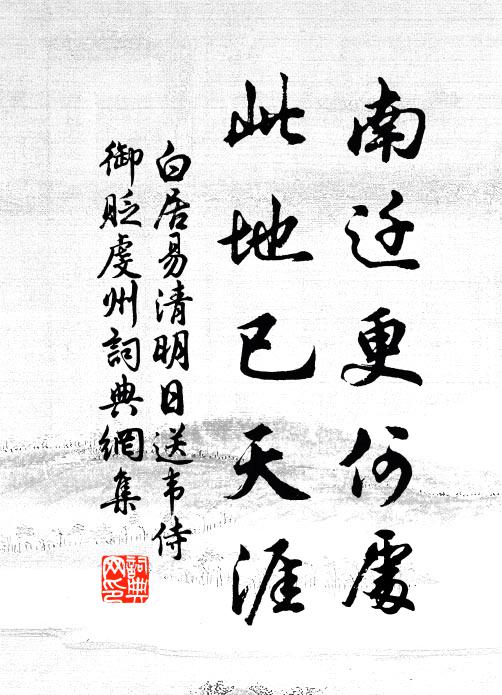 南迁更何處
此地已天涯
白居易清明日送韦侍
御贬虔州詞典網集
詞典
网印